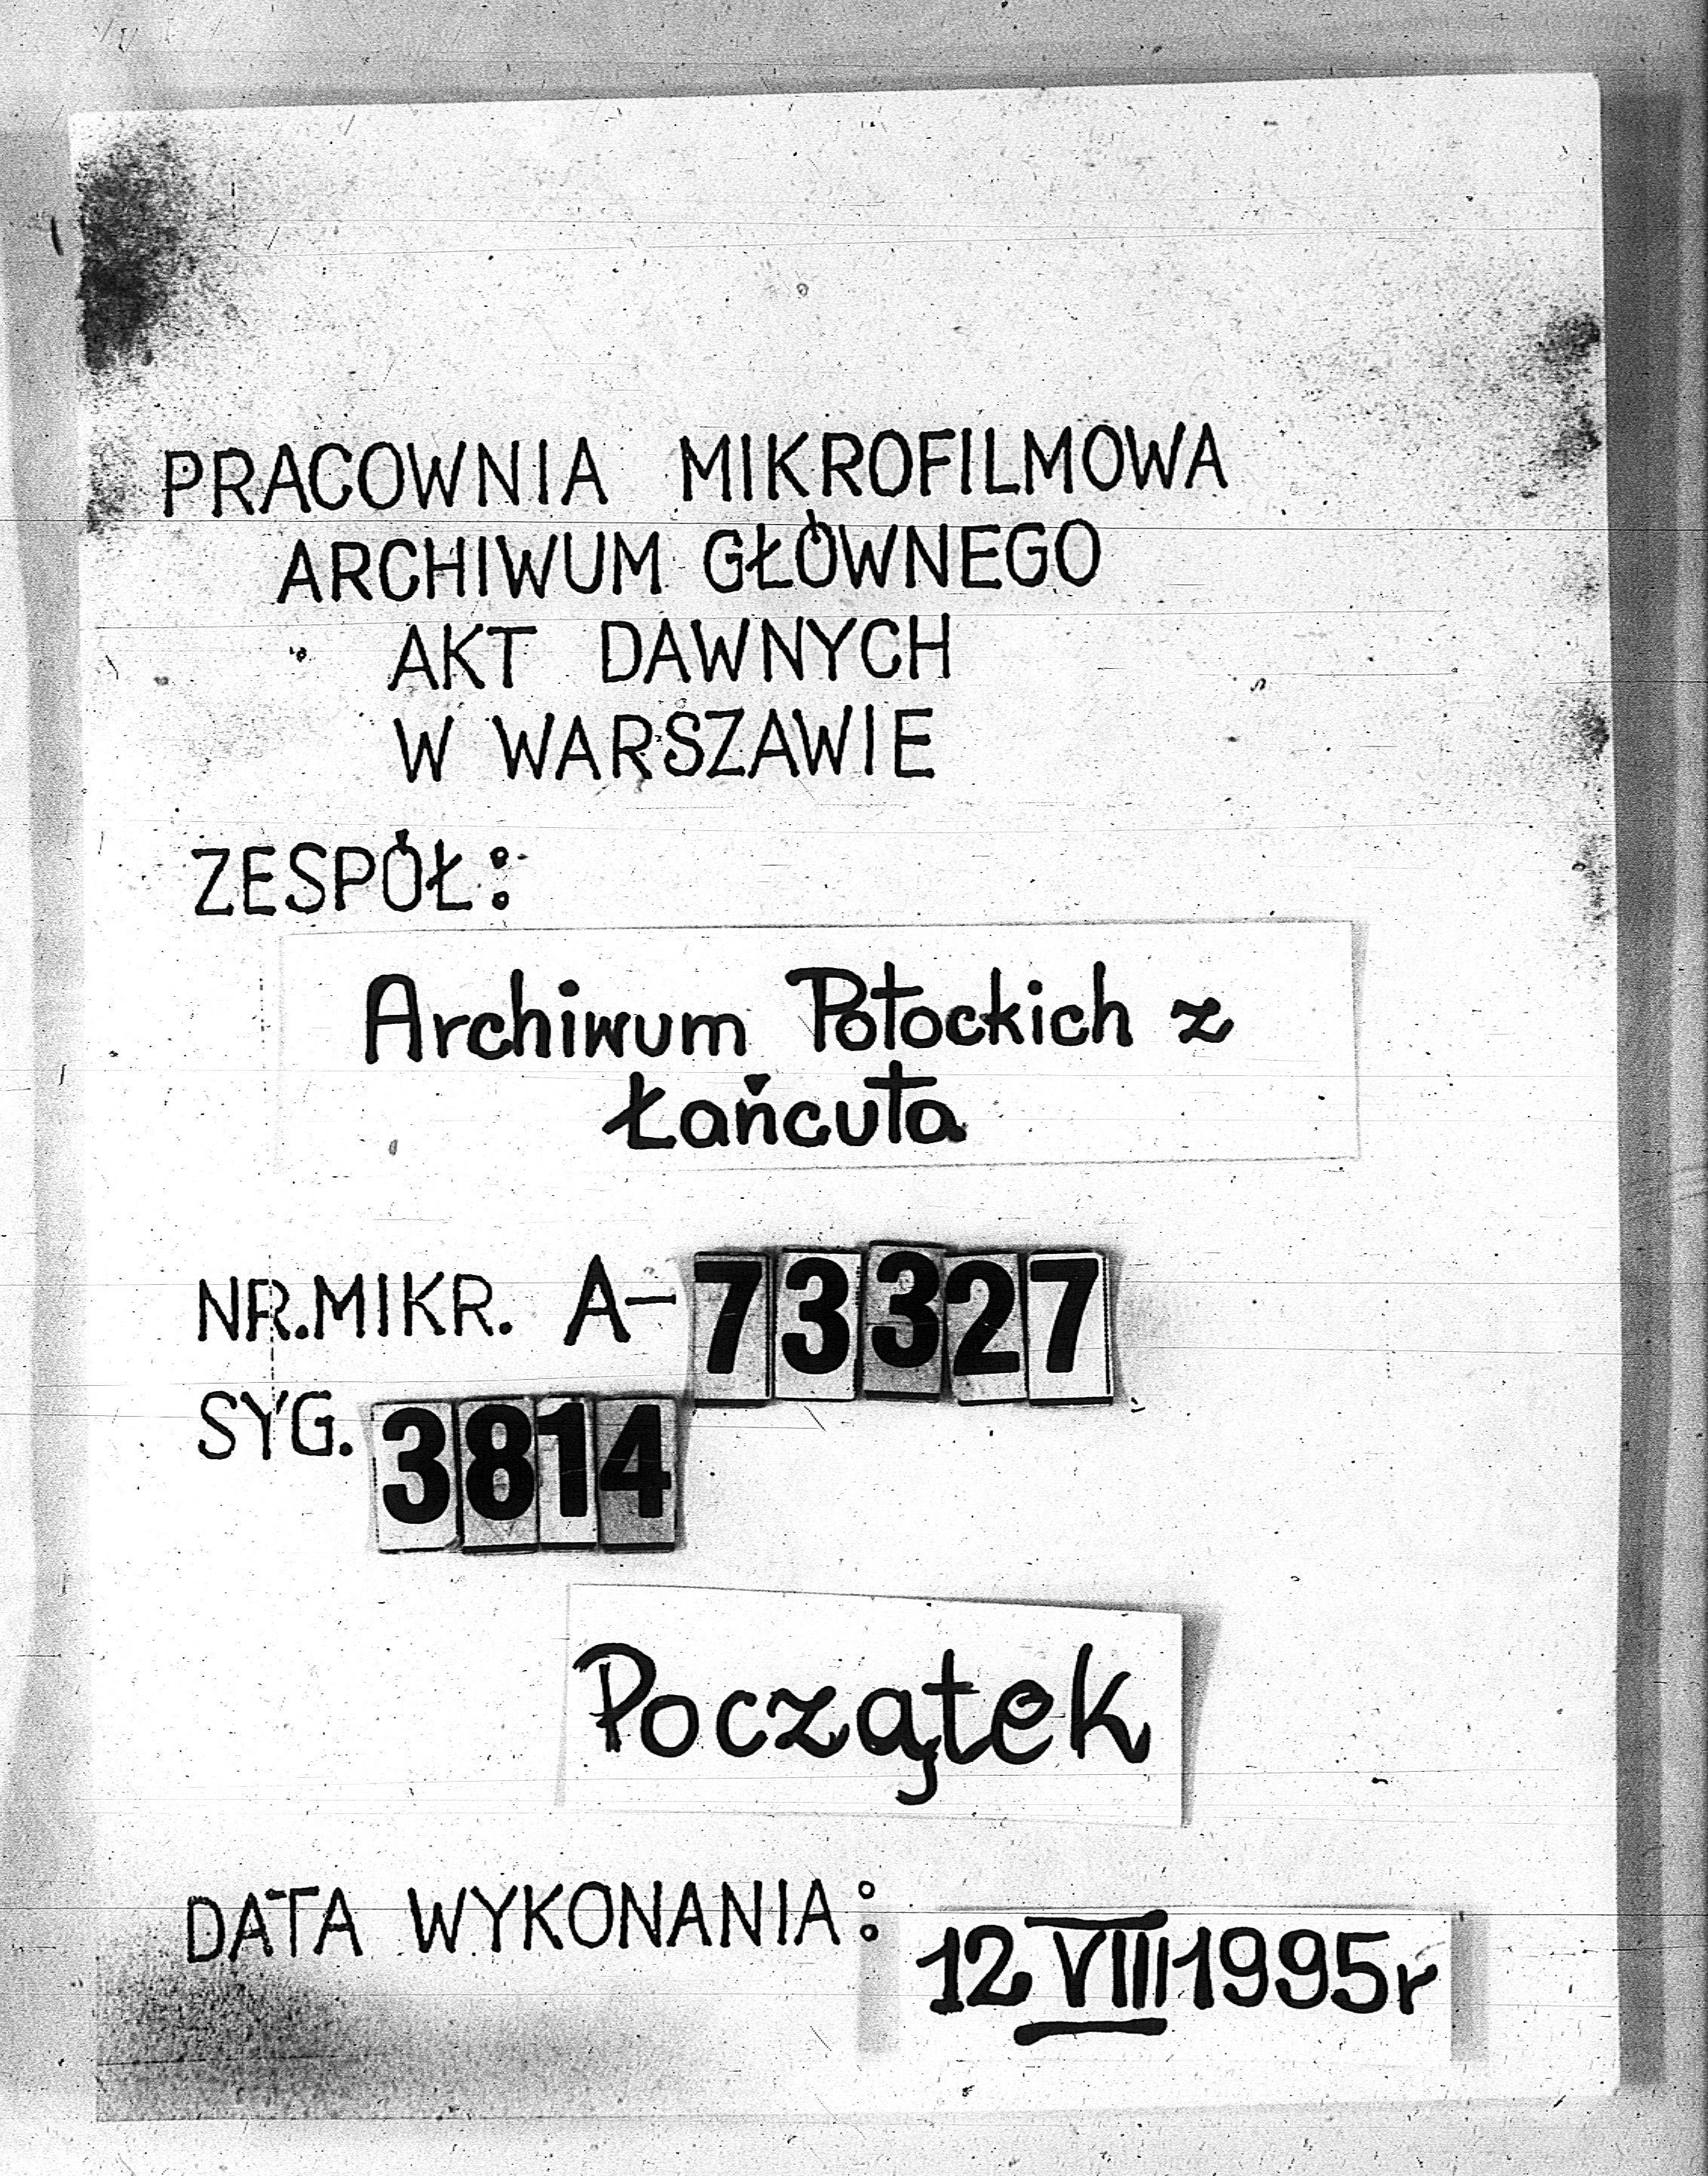 PRACOWNIA MIKROFILMOWA
ARCHIWUM GŁÓWNEGO
AKT DAWNYCH
W WARSZAWIE
ZESPÓŁ:
Archiwum Potockich z
Łańcuta
NR.MIKR. A-73327
SYG. 3814
Początek
DATA WYKONANIA: 12 VIII 1995r